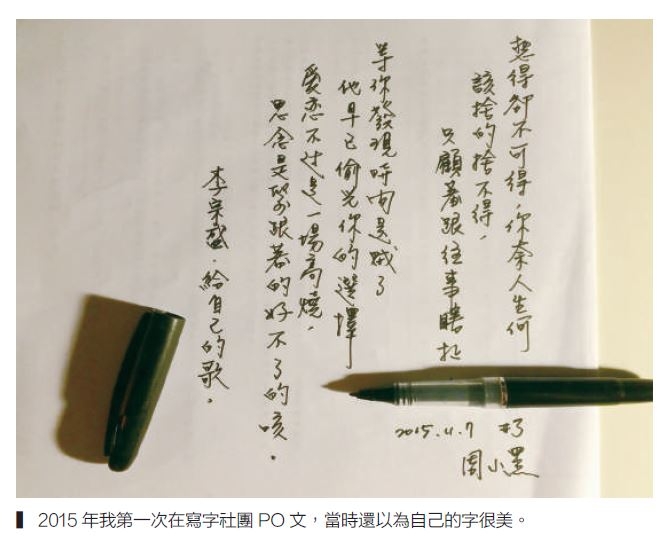 想得卻不可得,你奈人生何
該捨的捨不得,
只顧著跟往事瞎扯
等你發現時间是賊了
他早已偷光你的選擇
愛恋不过是一場高燒,
思念是緊跟着的好不了的咳。
李宗盛.給自己的歌。
2015.11.7 #3
周小黑
2015 年我第一次在寫字社團 PO 文,當時還以為自己的字很美。